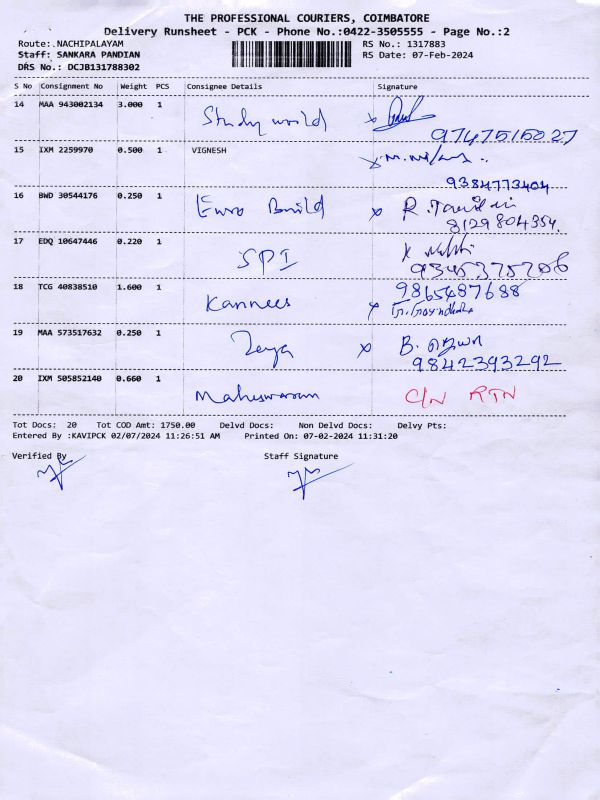 THE PROFESSIONAL COURIERS, COIMBATORE
Delivery Runsheet - PCK - Phone No.:0422-3505555 - Page No.:2
Route:.NACHIPALAYAM RS No.: 1317883
Staff: SANKARA PANDIAN RS Date: 07-Feb-2024
DRS No.: DCJB131788302
S No Consignment No Weight PCS Consignee Details Signature
14 MAA 943002134 3.000 1 Study world x
9747515027
15 IXM 2259970 0.500 1 VIGNESH x
9384773404
16 BWD 30544176 0.250 1 Euro Build x R.
8129804354.
17 EDQ 10647446 0.220 1 SPI x
9345375706
18 TCG 40838510 1.600 1 Kannees 9865487688
x
19 MAA 573517632 0.250 1 Jeya x B.
9842393292
20 IXM 505852140 0.660 1 Maheswaran C/N RTN
Tot Docs: 20 Tot COD Amt: 1750.00 Delvd Docs: Non Delvd Docs: Delvy Pts:
Entered By :KAVIPCK 02/07/2024 11:26:51 AM Printed On: 07-02-2024 11:31:20
Verified By Staff Signature